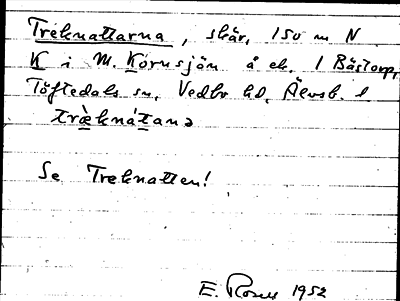 Treknattarna, skär, 150 m N
K i M. Kornsjön å ek. 1 Båstorp,
Töftedals sn, Vedbo hd, Älvsb. l
træ̀kna̍tanə
Se Treknatten!
E. Rosell 1952